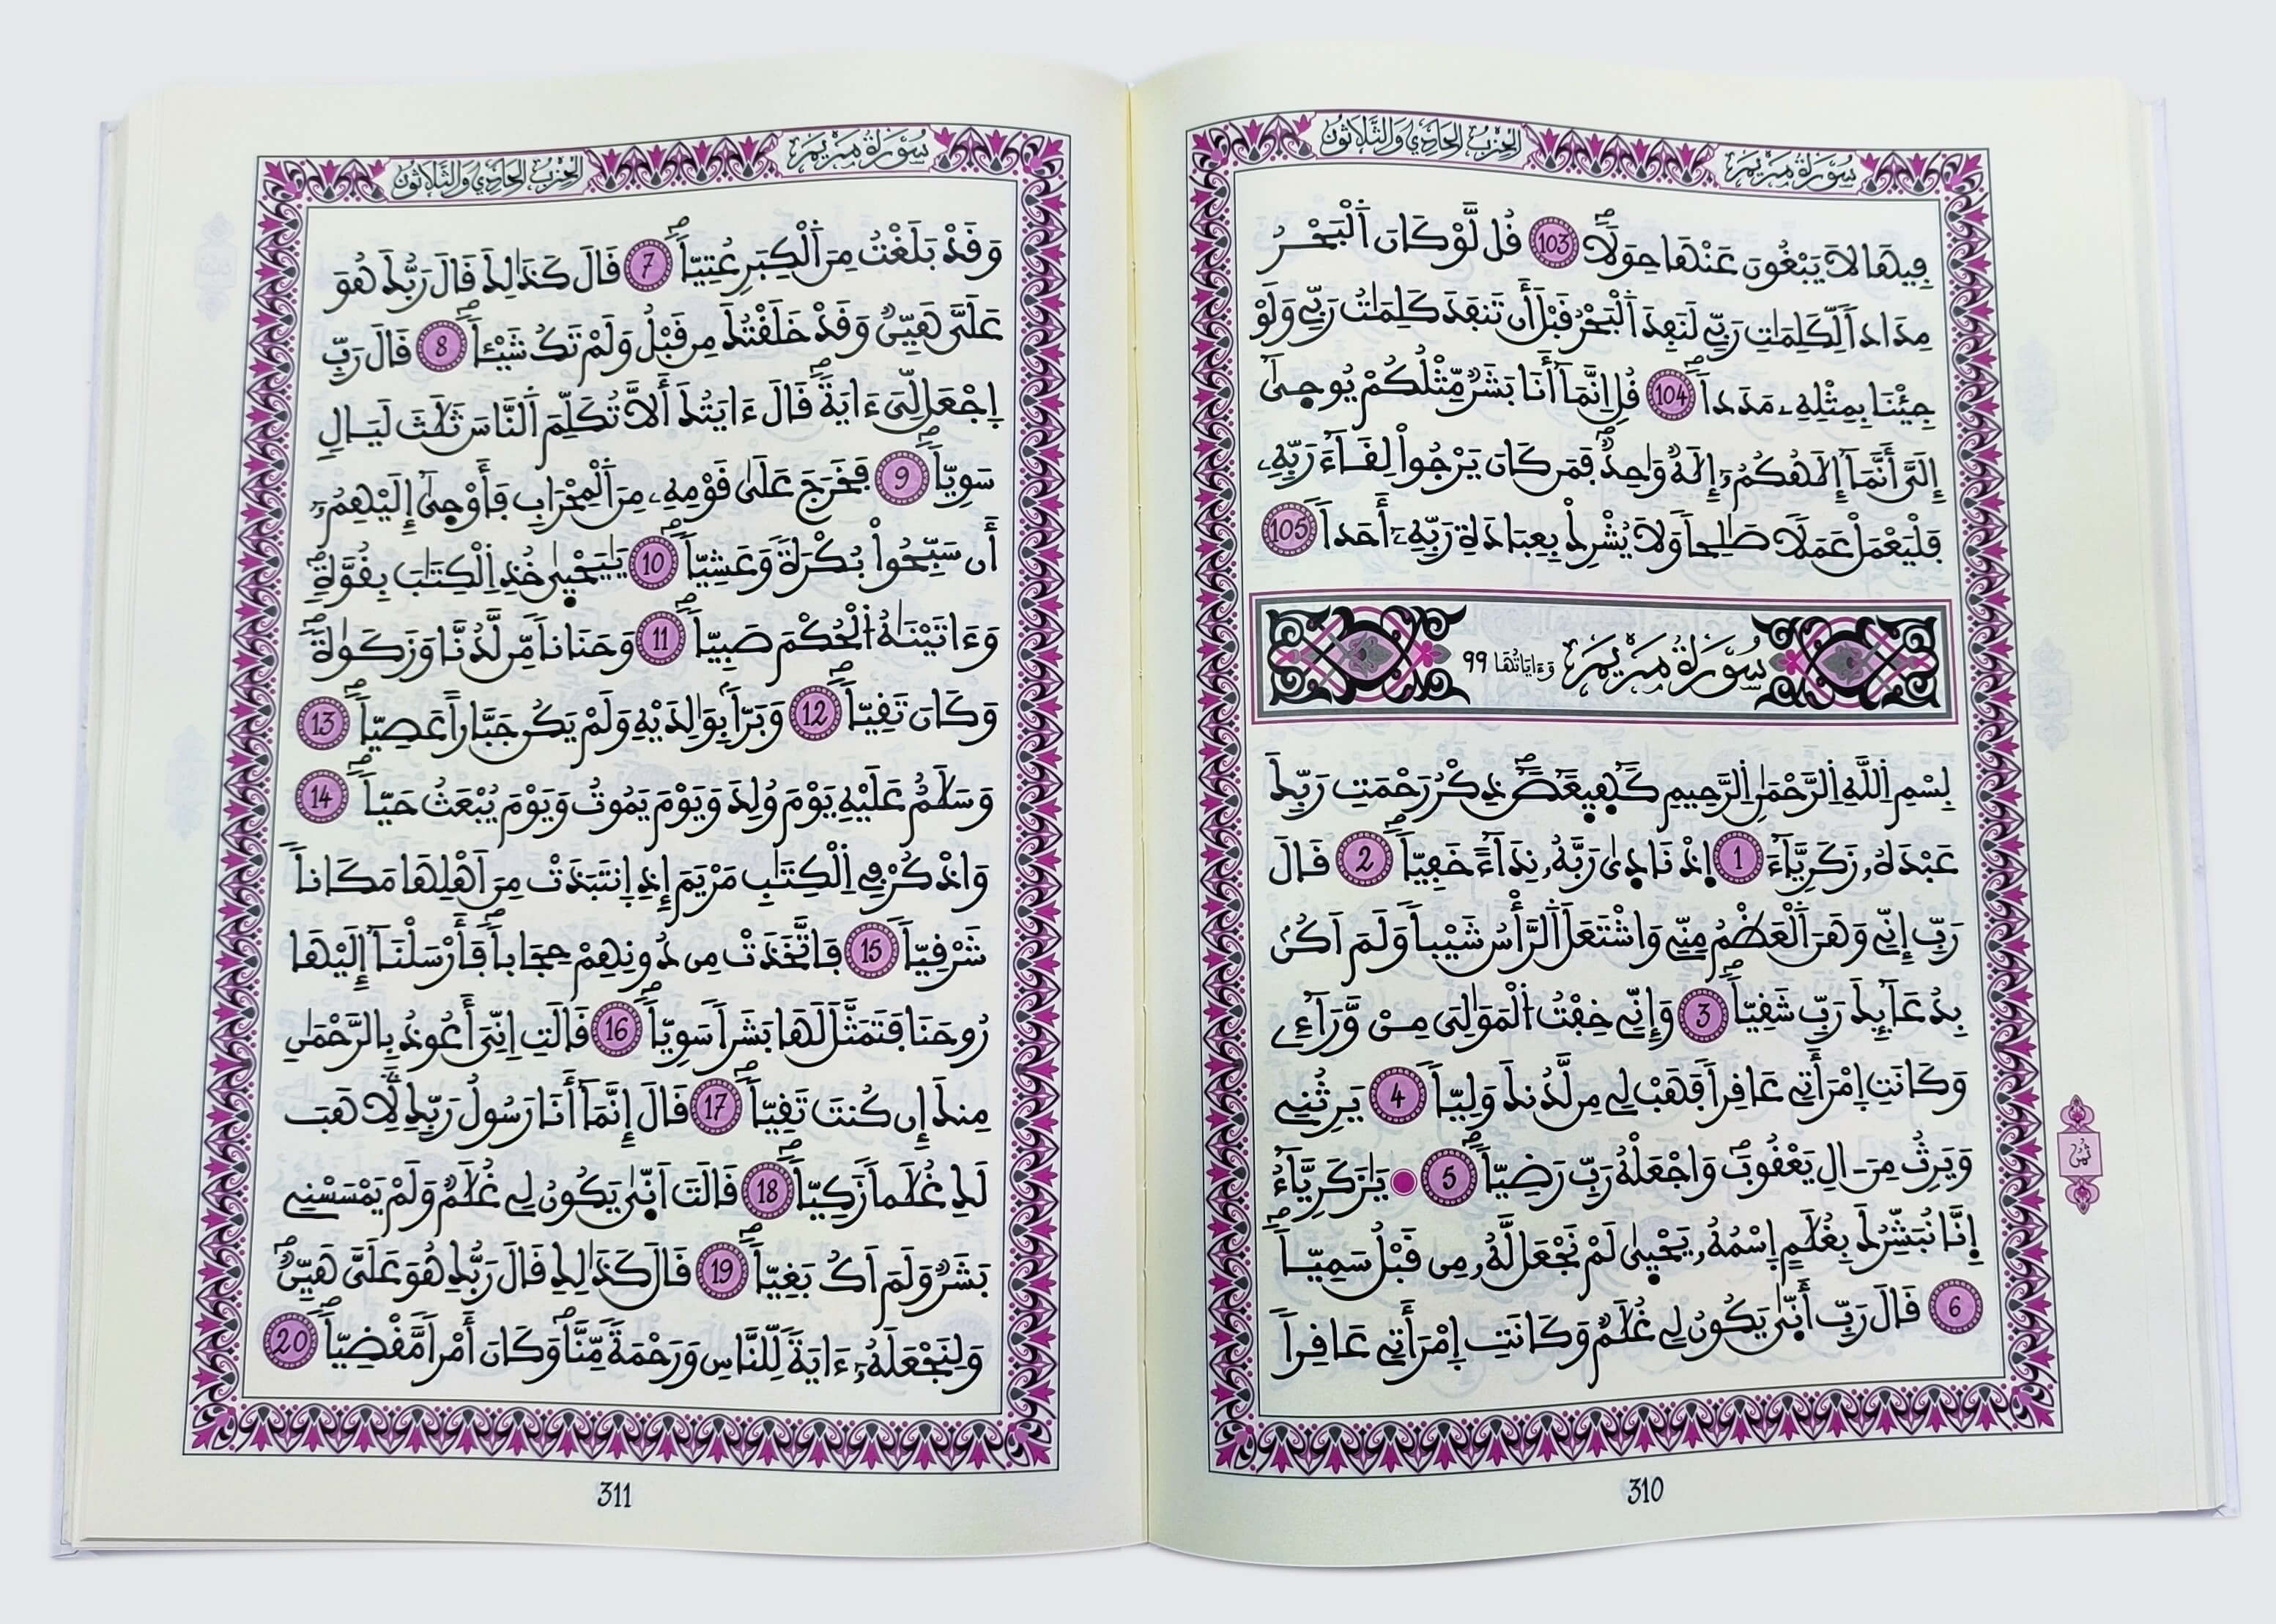 سُورَةُ مَرْيَمَ
الحِزْبُ الحَادِي وَالثَّلَاثُونَ
فِيهَا لَا يَبْغُونَ عَنْهَا حِوَلاً 103 قُل لَّوْ كَانَ اَلْبَحْرُ
مِدَاداً لِّكَلِمَٰتِ رَبِّے لَنَفِدَ اَلْبَحْرُ قَبْلَ أَن تَنفَدَ كَلِمَٰتُ رَبِّے وَلَوْ
جِئْنَا بِمِثْلِهِۦ مَدَداً 104 قُلِ اِنَّمَآ أَنَا بَشَرٌ مِّثْلُكُمْ يُوحَىٰٓ
إِلَىَّ أَنَّمَآ إِلَٰهُكُمُۥٓ إِلَٰهٌ وَٰحِدٌ فَمَن كَانَ يَرْجُواْ لِقَآءَ رَبِّهِۦ
فَلْيَعْمَلْ عَمَلاً صَٰلِحاً وَلَا يُشْرِكْ بِعِبَادَةِ رَبِّهِۦٓ أَحَداً 105
سُورَةُ مَرْيَمَ وَءَايَاتُهَا 99
بِسْمِ اِللَّهِ اِلرَّحْمَٰنِ اِلرَّحِيمِ كَٓهِيعَٓصَٓ ذِكْرُ رَحْمَتِ رَبِّكَ
عَبْدَهُۥ زَكَرِيَّآءَ 1 اِذْ نَادَىٰ رَبَّهُۥ نِدَآءً خَفِيّاً 2 قَالَ
رَبِّ إِنِّے وَهَنَ اَلْعَظْمُ مِنِّے وَاشْتَعَلَ اَلرَّأْسُ شَيْباً وَلَمَ اَكُنۢ
بِدُعَآئِكَ رَبِّ شَقِيّاً 3 وَإِنِّے خِفْتُ اُلْمَوَٰلِىَ مِنْ وَّرَآءِے
وَكَانَتِ اِمْرَأَتِے عَاقِراً فَهَبْ لِے مِن لَّدُنكَ وَلِيّاً 4 يَرِثُنِے
وَيَرِثُ مِنَ ـ الِ يَعْقُوبَ وَاجْعَلْهُ رَبِّ رَضِيّاً 5 يَٰزَكَرِيَّآءُ
إِنَّا نُبَشِّرُكَ بِغُلَٰمٍ اِسْمُهُۥ يَحْيَىٰ لَمْ نَجْعَل لَّهُۥ مِن قَبْلُ سَمِيّاً
6 قَالَ رَبِّ أَنَّىٰ يَكُونُ لِے غُلَٰمٌ وَكَانَتِ اِمْرَأَتِے عَاقِراً
ثُمُن
310
سُورَةُ مَرْيَمَ
الحِزْبُ الحَادِي وَالثَّلَاثُونَ
وَقَدْ بَلَغْتُ مِنَ اَلْكِبَرِ عُتِيّاً 7 قَالَ كَذَٰلِكَ قَالَ رَبُّكَ هُوَ
عَلَىَّ هَيِّنٌ وَقَدْ خَلَقْتُكَ مِن قَبْلُ وَلَمْ تَكُ شَيْـٔاً 8 قَالَ رَبِّ
اِجْعَل لِّىَ ءَايَةً قَالَ ءَايَتُكَ أَلَّا تُكَلِّمَ اَلنَّاسَ ثَلَٰثَ لَيَالٍ
سَوِيّاً 9 فَخَرَجَ عَلَىٰ قَوْمِهِۦ مِنَ اَلْمِحْرَابِ فَأَوْحَىٰٓ إِلَيْهِمُۥٓ
أَن سَبِّحُواْ بُكْرَةً وَعَشِيّاً 10 يَٰيَحْيَىٰ خُذِ اِلْكِتَٰبَ بِقُوَّةٍ
وَءَاتَيْنَٰهُ اُلْحُكْمَ صَبِيّاً 11 وَحَنَاناً مِّن لَّدُنَّا وَزَكَوٰةً
وَكَانَ تَقِيّاً 12 وَبَرّاً بِوَٰلِدَيْهِ وَلَمْ يَكُن جَبَّاراً عَصِيّاً 13
وَسَلَٰمٌ عَلَيْهِ يَوْمَ وُلِدَ وَيَوْمَ يَمُوتُ وَيَوْمَ يُبْعَثُ حَيّاً 14
وَاذْكُرْ فِے اِلْكِتَٰبِ مَرْيَمَ إِذِ اِنتَبَذَتْ مِنَ اَهْلِهَا مَكَاناً
شَرْقِيّاً 15 فَاتَّخَذَتْ مِن دُونِهِمْ حِجَاباً فَأَرْسَلْنَآ إِلَيْهَا
رُوحَنَا فَتَمَثَّلَ لَهَا بَشَراً سَوِيّاً 16 قَالَتِ اِنِّىَ أَعُوذُ بِالرَّحْمَٰنِ
مِنكَ إِن كُنتَ تَقِيّاً 17 قَالَ إِنَّمَآ أَنَا رَسُولُ رَبِّكِ لِأَهَبَ
لَكِ غُلَٰماً زَكِيّاً 18 قَالَتَ اَنَّىٰ يَكُونُ لِے غُلَٰمٌ وَلَمْ يَمْسَسْنِے
بَشَرٌ وَلَمَ اَكُ بَغِيّاً 19 قَالَ كَذَٰلِكِ قَالَ رَبُّكِ هُوَ عَلَىَّ هَيِّنٌ
وَلِنَجْعَلَهُۥٓ ءَايَةً لِّلنَّاسِ وَرَحْمَةً مِّنَّا وَكَانَ أَمْراً مَّقْضِيّاً 20
311